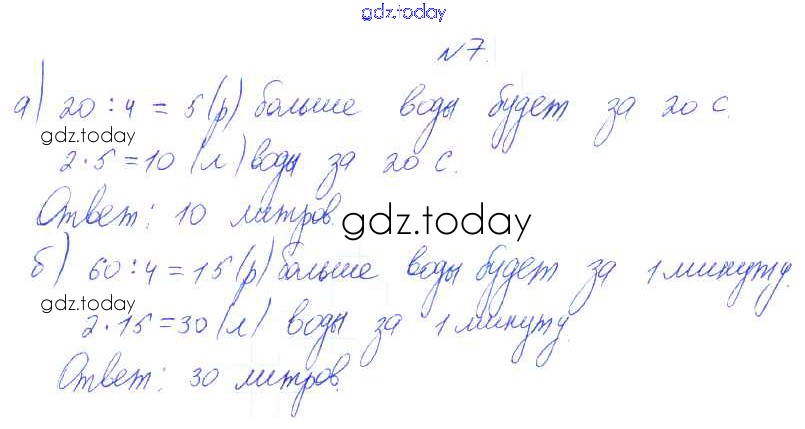 gdz.today
№7.
а) 20 : 4 = 5 (р) больше воды будет за 20 с.
gdz.today
2 · 5 = 10 (л) воды за 20 с.
Ответ: 10 литров.
gdz.today
б) 60 : 4 = 15 (р) больше воды будет за 1 минуту.
gdz.today
2 · 15 = 30 (л) воды за 1 минуту.
Ответ: 30 литров.